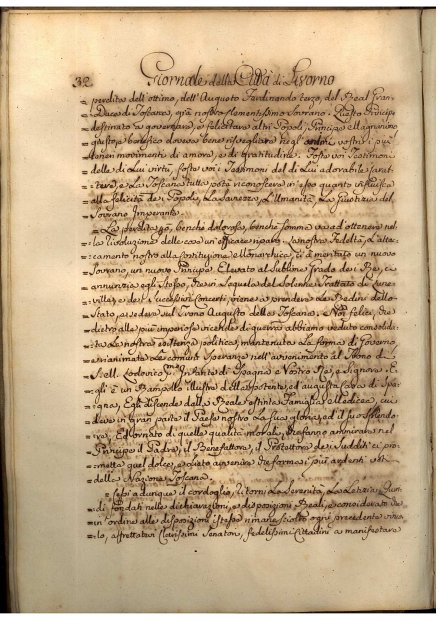 32 Giornale della Città di Livorno
= perdita dell'ottimo, dell'Augusto Ferdinando terzo, del Real Gran=
= Duca di Toscana, già nostro Clementissimo Sovrano. Questo Principe
= destinato a governare, e felicitare altri Popoli, Principe Magnanimo
= giusto, e benefico doveva bene risvegliare negl' animi vostri i più
= teneri movimenti di amore, e di gratitudine. Foste voi testimoni
= delle di Lui virtù, foste voi i testimoni del di Lui adorabile Carat=
= tere, e La Toscana tutta potè riconoscere in esso quanto influisca
= alla felicità de' Popoli, La Saviezza, L'Umanità, La Giustizia del
= Sovrano Imperante.
= La perdita, benchè dolorosa, benchè somma va ad ottenere nel=
= la rivoluzione delle cose un efficace riparo. La nostra Fedeltà, L'attac=
= camento nostro alla Costituzione Monarchica, ci à meritato un nuovo
= Sovrano, un nuovo Principe. Elevato al Sublime grado dei Re, ci
= annunzia egli stesso, che in sequela del solenne Trattato di Lune=
= ville, e de' successivi Concerti, viene a prendere Le Redini dello
= Stato, e sedere sul Trono Augusto della Toscana. Noi felici, che
= dietro alle più imperiose vicende di guerra abbiamo veduto consolida=
= ta La nostra esistenza politica, mantenuta La forma di Governo,
= e rianimate Le comuni Speranze nell'avvenimento al Trono di
= S. M. Lodovico P.mo Infante di Spagna e Nostro Re, e Signore. E=
= gli è un Rampollo illustre della potente, ed augusta Casa di Spa=
= gna, Egli discende dalla Reale estinta Famiglia Medicea, cui
= deve in gran parte il Paese nostro La sua gloria, ed il suo splendo=
= re. Ed ornato di quelle qualità morali, che fanno ammirare nel
= Principe il Padre, il Benefattore, il Protettore dei Sudditi ci pro=
= metta quel dolce, e grato avvenire che forma i più ardenti voti
= della Nazione Toscana.
= Cessi adunque il cordoglio, ritorni La Serenità, La Letizia. Quin=
= di fondati nelle dichiarazioni, e disposizioni Reali, e considerato che
= in ordine alle disposizioni istesse rimane sciolto ogni precedente vinco=
= lo, affrettatevi Chiarissimi Senatori, fedelissimi Cittadini a manifestare